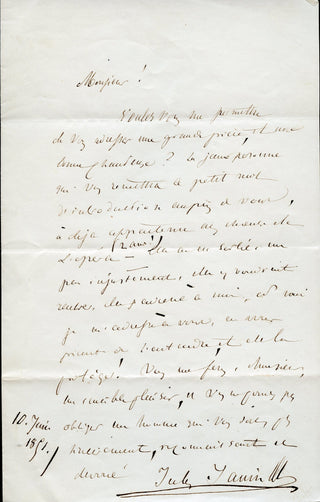 Monsieur !
Voulez vous me permettre
de vous adresser une grande prière, et une
bonne chanteuse ? La jeune personne
qui vous remettra ce petit mot
d'introduction auprès de vous,
a déjà appartenu aux chœurs de
l'opéra — (3 ans) Elle en est sortie, un
peu injustement, elle y voudrait
rentrer, elle à moi, et voici
que je m'adresse à vous, en vous
priant de l'entendre et de la
protéger ! Vous me ferez, Monsieur,
un sensible plaisir, et vous ne pouvez pas
obliger un homme qui vous soit plus
vivement, reconnaissant et
dévoué
10. Juin
1851
Jules Janin